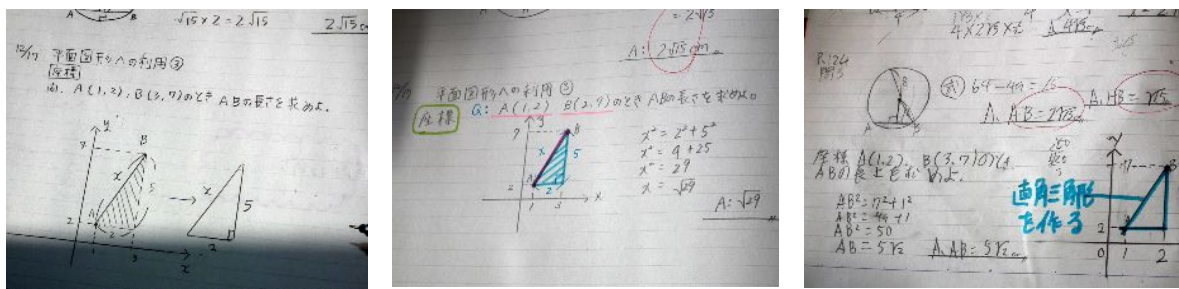 √15×2=2√15
2√15cm
12/17 平面図形への利用③
座標
例. A(1,2), B(3,7)のとき ABの長さを求めよ.
y
7
B
x
5
A
2
2
1
3
x
x
5
2
=2√15
A: 2√15cm
平面図形への利用③
座標
Q: A(1,2) B(2,7)のとき ABの長さを求めよ。
y
7
B
x
5
A
2
2
1
3
x
x²=2²+5²
x²=4+25
x²=29
x=√29
A: √29
P.124
問3
A
B
8
(式) 64-49=15
A. AB=2√15
座標 A(1,2), B(3,7)のとき
AB²=7²+1²
AB²=49+1
AB²=50
AB=5√2
A. AB=5√2cm
直角三角形
を作る
y
7
B
2
A
0
1
2